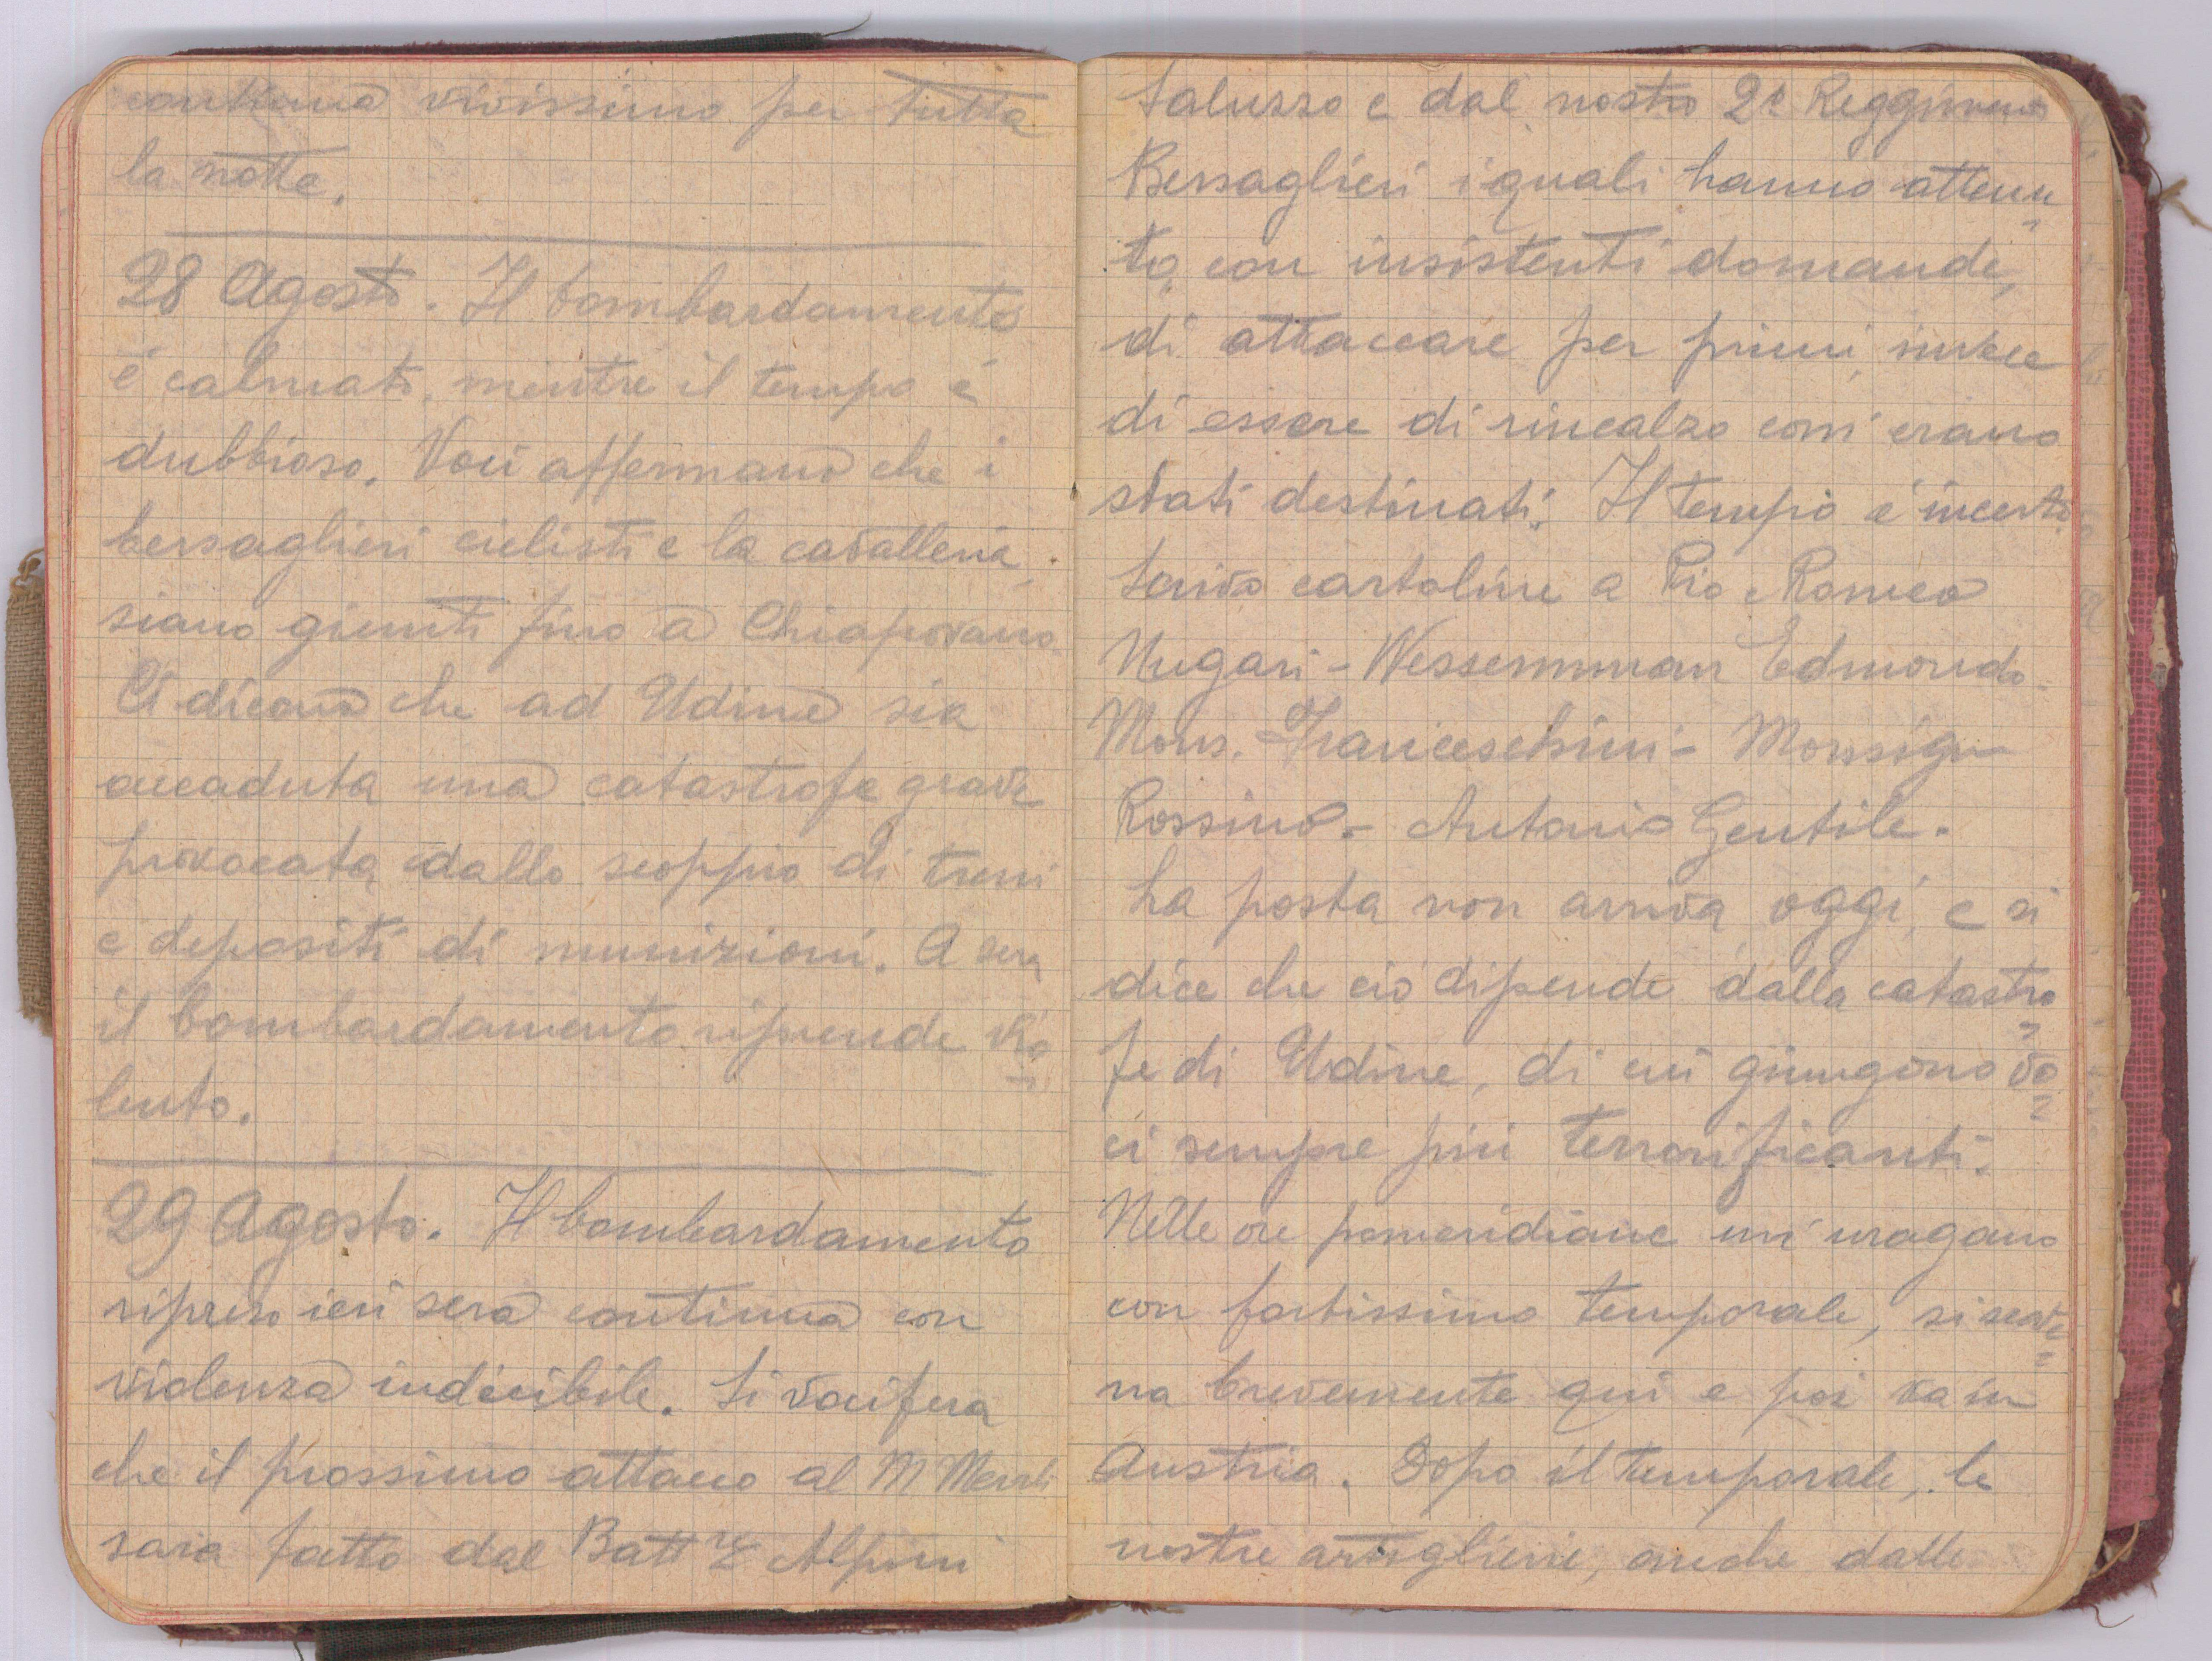 continua vivissimo per tutta
la notte.
28 Agosto. Il bombardamento
è calmato, mentre il tempo è
dubbioso. Voci affermano che i
bersaglieri ciclisti e la cavalleria,
siano giunti fino a Chiapovano.
Ci dicono che ad Udine sia
accaduta una catastrofe grave
provocata dallo scoppio di treni
e depositi di munizioni. A sera
il bombardamento riprende vio
lento.
29 Agosto. Il bombardamento
ripreso ieri sera continua con
violenza indicibile. Si vocifera
che il prossimo attacco al M
sarà fatto dal Batt Alpini
Saluzzo e dal nostro 2º Reggimento
Bersaglieri i quali hanno attenu
to, con insistenti domande,
di attaccare per primi, invece
di essere di rincalzo com'erano
stati destinati. Il tempo è incerto.
Scrivo cartoline a Pio e Romeo
Nugari - Wessemman Edmondo
Mons. Franceschini - Monsign
Rossino. - Antonio Gentile.
La posta non arriva oggi, e si
dice che ciò dipende dalla catastro
fe di Udine, di cui giungono vo
ci sempre più terrorificanti.
Nelle ore pomeridiane un'uragano
con fortissimo temporale, si scate
na brevemente qui e poi va in
Austria. Dopo il temporale, le
nostre artiglierie, anche dalle